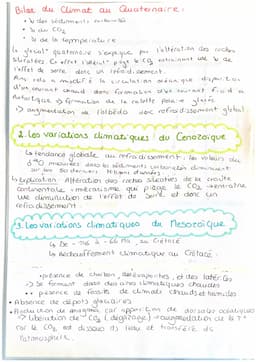 Bilan du Climat au Quaternaire :
• ↘ des sédiments carbonatés
• ↘ du CO₂
• ↘ de la température
global quaternaire s'explique par l'altération des roches
silicatées. Ce effet piège le CO₂ entrainant une ↘ de
l'effet de serre donc un refroidissement.
modifié la circulation océanique disparition
d'un courant chaud donc formation d'un courant froid à
Antarctique → formation de la calotte polaire glacés
→ augmentation de l'albédo donc refroidissement global
2. Les variations climatiques du Cénozoïque
↳ tendance globale au refroidissement : les valeurs du
δ¹⁸O mesurées dans les sédiments carbonatés diminuent
sur les derniers Millions d'années
↳ Explication : Altération des roches silicatées de la croûte
continentale : mécanisme qui piège le CO₂ → entraîne
une diminution de l'effet de serre et donc un
refroidissement.
3. Les variations climatiques du Mésozoïque
↳ De - à - 66 Ma, au Crétacé
↳ Réchauffement climatique au Crétacé :
• présence de charbon, d'évaporites, et des latérites
→ Se forment dans des zones climatiques chaudes
• présence de fossiles de climats chauds et humides
• Absence de dépôts glaciaires
• Production de magma car apparition de dorsales océaniques
→ libération de CO₂ (dégazage) → augmentation de la T°
car le CO₂ est dissous ds l'eau et transféré ds
l'atmosphère.